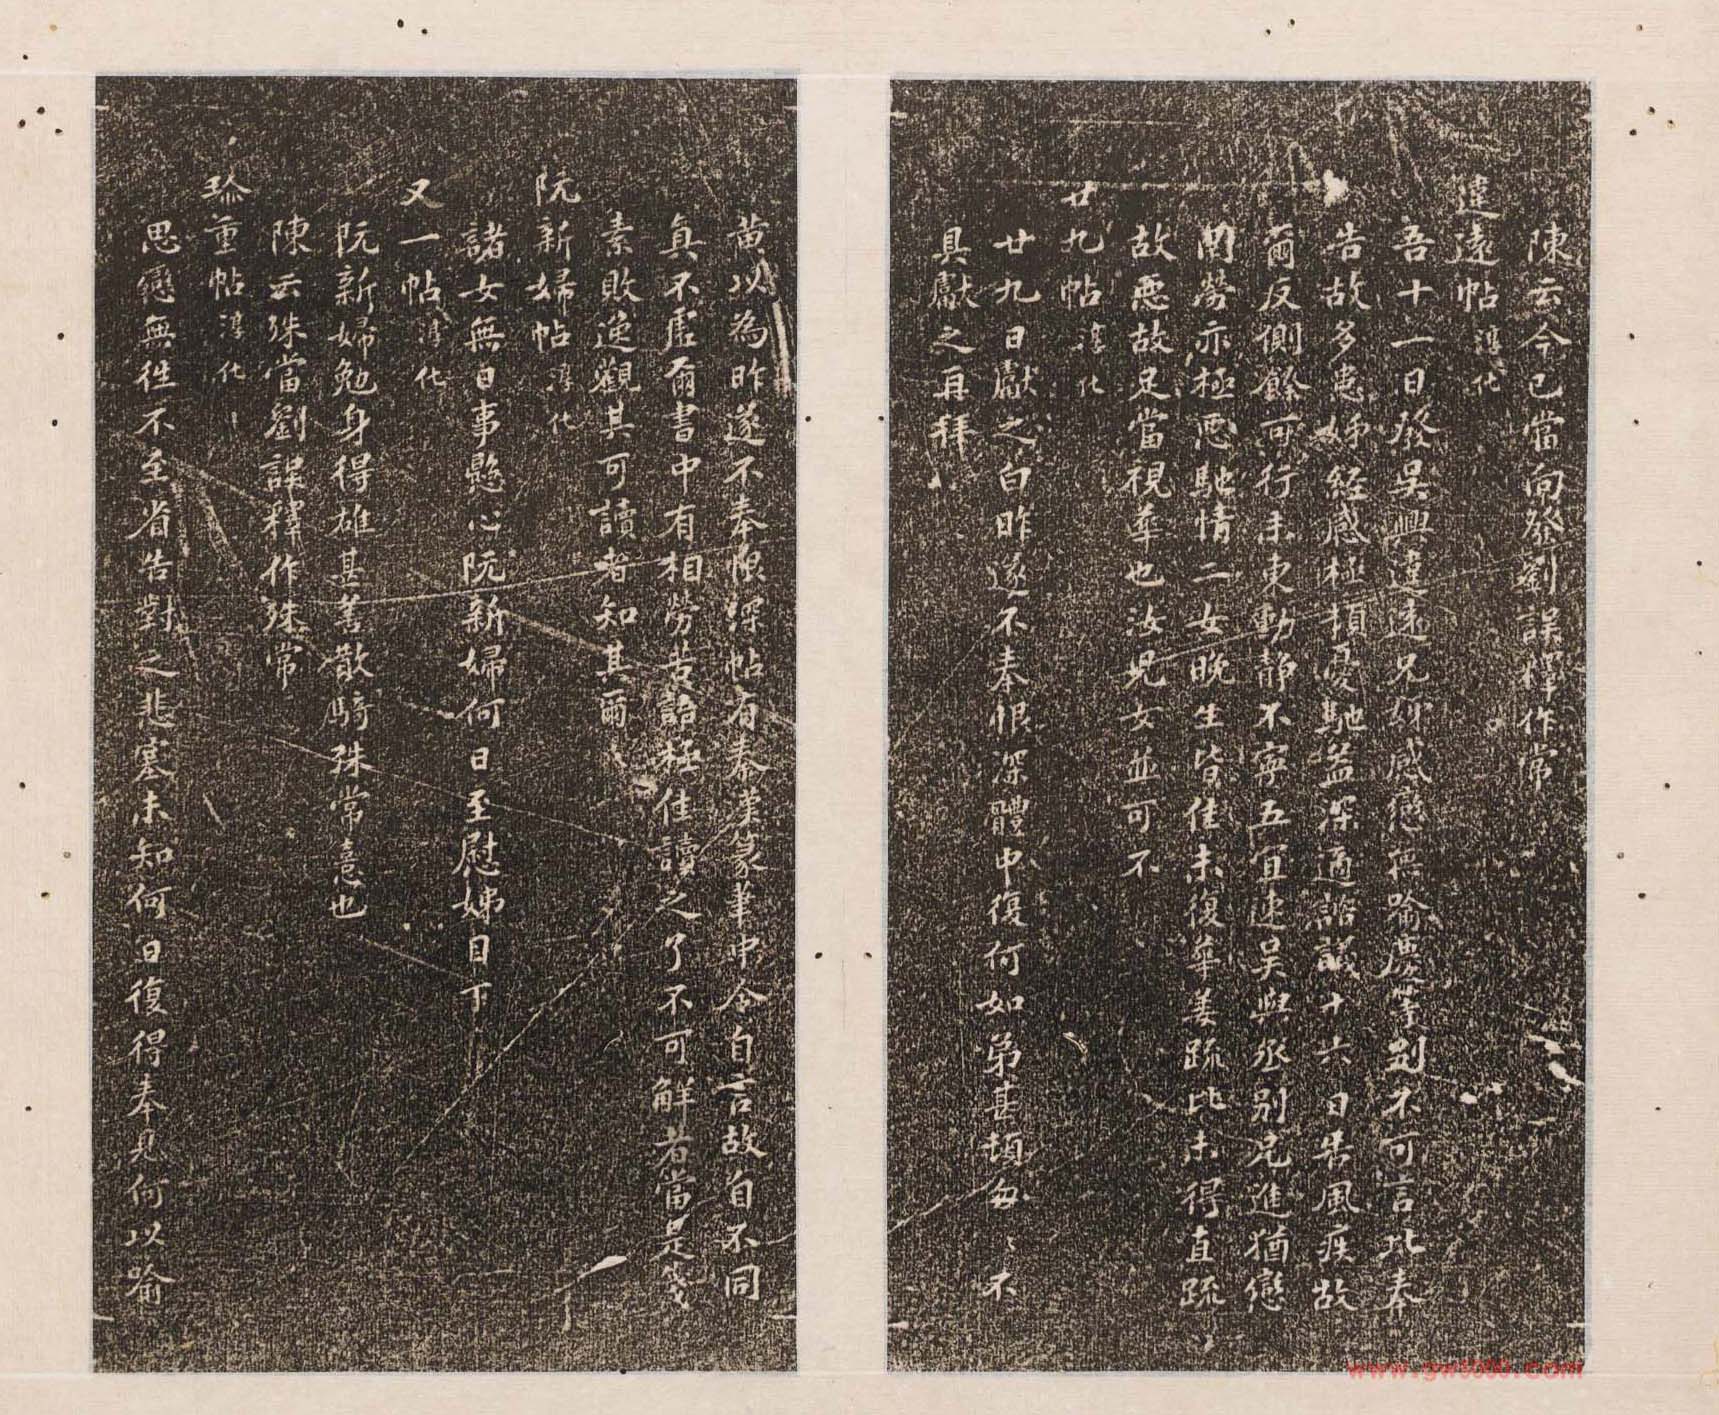 陳云今已當向發劉誤釋作常
違遠帖 淳化
吾十一日發吳興違遠兄姊感戀無喻慶等別不可言比奉
告故多患姊經感極頓憂馳益深適諮議十六日告風疾故
爾反側餘可行未東動靜不寧五宜速吳興丞別兄進猶戀
聞勞亦極惡馳情二女晚生皆佳未復華姜疏比未得直疏
故惡故足當視華也汝兒女並可不
廿九帖 淳化
廿九日獻之白昨遂不奉恨深體中復何如弟甚頓匆〻不
具獻之再拜
黃以為昨遂不奉恨深帖有秦漢篆筆中令自言故自不同
真不虛爾書中有相勞苦語極佳讀之了不可解者當是箋
素敗逸觀其可讀者知其爾
阮新婦帖 淳化
諸女無日事懸心阮新婦何日至慰姊目下
又一帖 淳化
阮新婦勉身得雄甚善散騎殊常憙也
陳云殊當劉誤釋作殊常
珎重帖 淳化
思戀無往不至省告對之悲塞未知何日復得奉見何以喻
www.gw5000.com